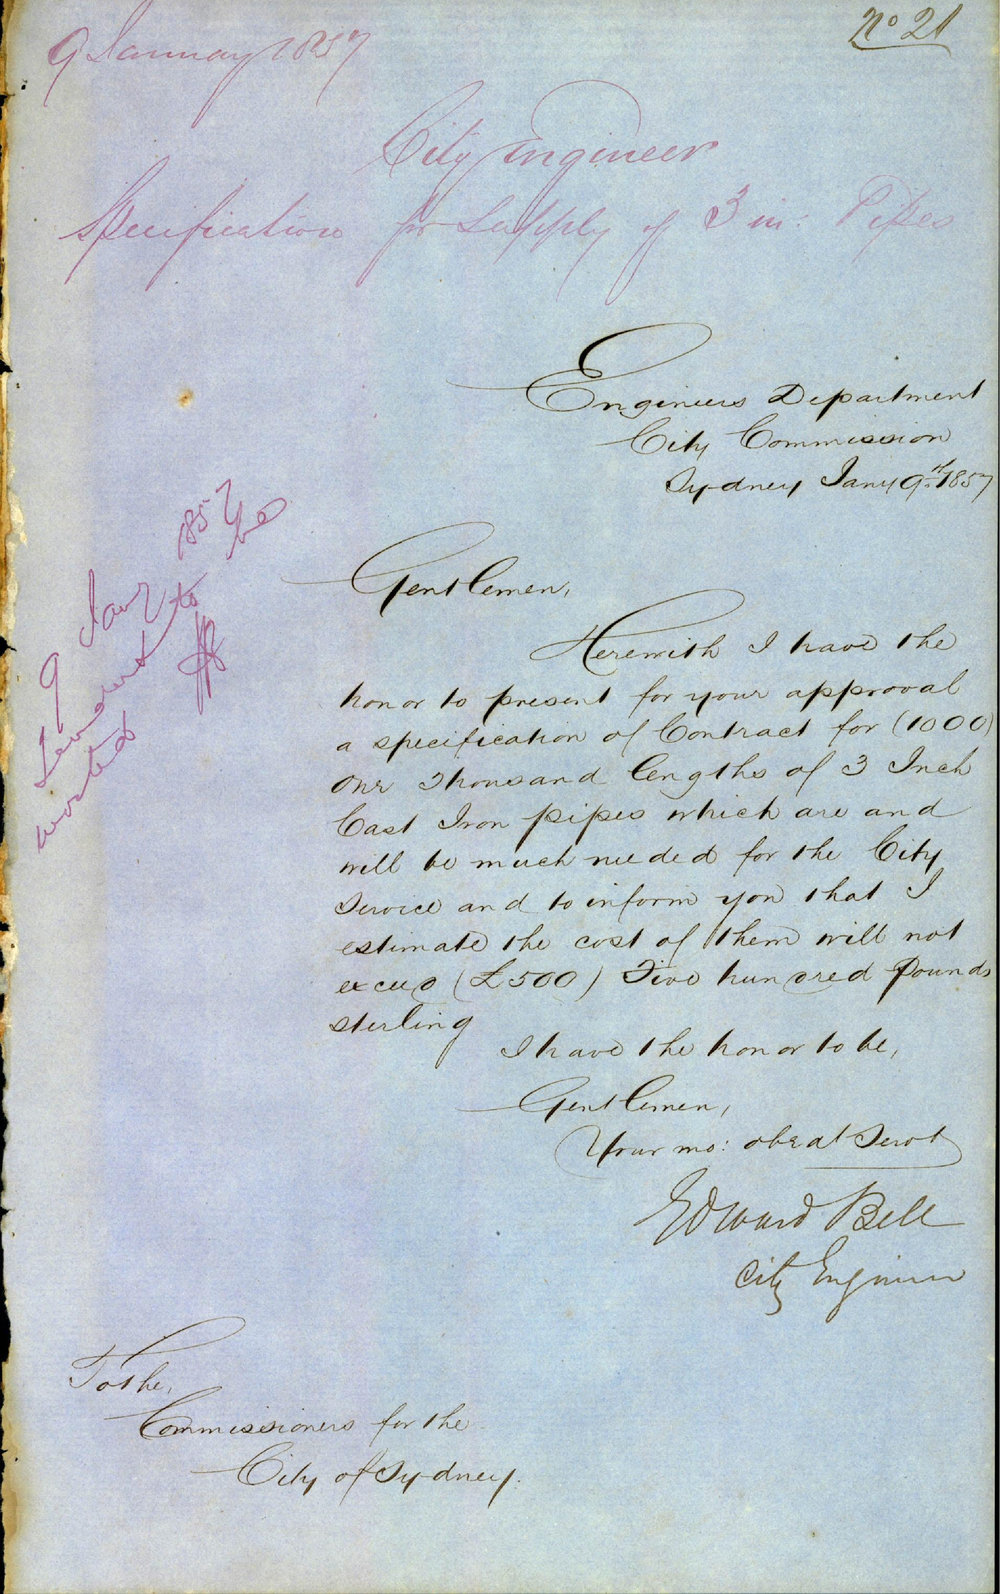 9 January 1857
No 21
City Engineer
Specification for Supply of 3 in: Pipes
Engineers Department
City Commission
Sydney Jany 9th 1857
9 Jany 1857
Tenders to be
Gentlemen,
Herewith I have the
honor to present for your approval
a specification of Contract for (1000)
One Thousand lengths of 3 Inch
Cast Iron pipes which are and
will be much needed for the City
Service and to inform you that I
estimate the cost of them will not
exceed (£500) Five hundred Pounds
sterling
I have the honor to be,
Gentlemen,
Your mo: obedt Servt
Edward Bell
City Engineer
To the,
Commissioners for the
City of Sydney.